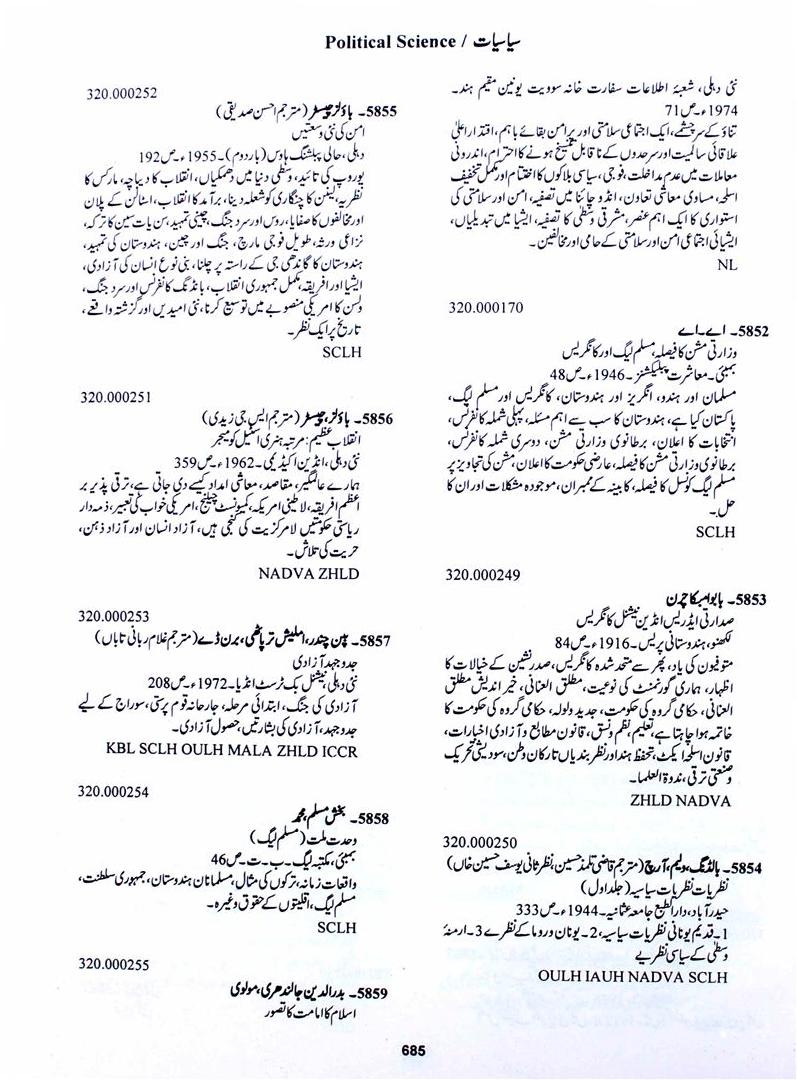 Political Science / سیاسیات
نئی دہلی، شعبۂ اطلاعات سفارت خانہ سوویت یونین مقیم ہند۔
1974ء۔ص71
تناؤ کے سرچشمے، ایک اجتماعی سلامتی اور پر امن بقائے باہم، اقتدار اعلیٰ
علاقائی سالمیت اور سرحدوں کے ناقابل تنسیخ ہونے کا احترام، اندرونی
معاملات میں عدم مداخلت، فوجی، سیاسی بلاکوں کا اختتام اور مکمل تخفیف
اسلحہ، مساوی معاشی تعاون، انڈو چائنا میں تصفیہ، امن اور سلامتی کی
استواری کا ایک اہم عنصر، مشرقی وسطیٰ کا تصفیہ، ایشیا میں تبدیلیاں،
ایشیائی اجتماعی امن اور سلامتی کے حامی اور مخالفین۔
NL
320.000170
5852۔ اے۔اے
وزارتی مشن کا فیصلہ، مسلم لیگ اور کانگریس
بمبئی۔ معاشرت پبلیکشنز۔1946ء۔ص48
مسلمان اور ہندو، انگریز اور ہندوستان، کانگریس اور مسلم لیگ،
پاکستان کیا ہے، ہندوستان کا سب سے اہم مسئلہ، پہلی شملہ کانفرنس،
انتخابات کا اعلان، برطانوی وزارتی مشن، دوسری شملہ کانفرنس،
برطانوی وزارتی مشن کا فیصلہ، عارضی حکومت کا اعلان، مشن کی تجاویز پر
مسلم لیگ کونسل کا فیصلہ، کابینہ کے ممبران، موجودہ مشکلات اور ان کا
حل۔
SCLH
320.000249
5853۔ بابو امبیکا چرن
صدارتی ایڈریس انڈین نیشنل کانگریس
لکھنؤ، ہندوستانی پریس۔1916ء۔ص84
متوفیون کی یاد، پھر سے متحد شدہ کانگریس، صدر نشین کے خیالات کا
اظہار، ہماری گورنمنٹ کی نوعیت، مطلق العنانی، خیر اندیش مطلق
العنانی، حکامی گروہ کی حکومت، جدید ولولہ، حکامی گروہ کی حکومت کا
خاتمہ ہوا چاہتا ہے، تعلیم، نظم و نسق، قانون مطابع و آزادی اخبارات،
قانون اسلحہ ایکٹ، تحفظ ہند اور نظر بندیاں تارکان وطن، سودیشی تحریک
و صنعتی ترقی، ندوۃ العلما۔
ZHLD NADVA
320.000250
5854۔ بالڈنگ، ولیم، آرچ (مترجم قاضی تلمذ حسین، نظر ثانی یوسف حسین خاں)
نظریات نظریات سیاسیہ (جلد اول)
حیدرآباد، دارالطبع جامعہ عثمانیہ۔1944ء۔ص333
1۔قدیم یونانی نظریات سیاسیہ، 2۔یونان و روما کے نظرے 3۔ازمنۂ
وسطیٰ کے سیاسی نظریے
OULH IAUH NADVA SCLH
320.000252
5855۔ باؤلز چیسٹر (مترجم احسن صدیقی)
امن کی نئی وسعتیں
دہلی، حالی پبلشنگ ہاؤس (بار دوم)۔1955ء۔ص192
یوروپ کی تائید، وسطی دنیا میں دھمکیاں، انقلاب کا دیباچہ، مارکس کا
نظریہ، لینن کا چنگاری کو شعلہ دینا، برآمد کا انقلاب، اسٹالن کے پلان
اور مخالفوں کا صفایا، روس اور سرد جنگ، چینی تمہید، سن یات سین کا ترکہ،
نزاعی ورثہ، طویل فوجی مارچ، جنگ اور چین، ہندوستان کی تمہید،
ہندوستان کا گاندھی جی کے راستہ پر چلنا، بنی نوع انسان کی آزادی،
ایشیا اور افریقہ، مکمل جمہوری انقلاب، بانڈنگ کانفرنس اور سرد جنگ،
ولسن کا امریکی منصوبے میں توسیع کرنا، نئی امیدیں اور گزشتہ واقعے،
تاریخ پر ایک نظر۔
SCLH
320.000251
5856۔ باؤلز، چیسٹر (مترجم ایس جی زیدی)
انقلاب عظیم: مرتبہ ہنری اسٹیل کومیجر
نئی دہلی، انڈین اکیڈیمی۔1962ء۔ص359
ہمارے عالمگیر، مقاصد، معاشی امداد کیسے دی جاتی ہے، ترقی پذیر بر
اعظم افریقہ، لاطینی امریکہ، کمیونسٹ چیلنج، امریکی خواب کی تعبیر، ذمہ دار
ریاستی حکومتیں لامرکزیت کی کنجی ہیں، آزاد انسان اور آزاد ذہن،
حریت کی تلاش۔
NADVA ZHLD
320.000253
5857۔ بپن چندر، املیش ترپاٹھی، برن ڈے (مترجم غلام ربانی تاباں)
جدوجہد آزادی
نئی دہلی، نیشنل بک ٹرسٹ انڈیا۔1972ء۔ص208
آزادی کی جنگ، ابتدائی مرحلہ، جارحانہ قوم پرستی، سوراج کے لیے
جدوجہد، آزادی کی بشارتیں، حصول آزادی۔
KBL SCLH OULH MALA ZHLD ICCR
320.000254
5858۔ بخش مسلم، محمد
وحدت ملت (مسلم لیگ)
بمبئی، مکتبہ لیگ۔ب۔ت۔ص46
واقعات زمانہ، ترکوں کی مثال، مسلمانان ہندوستان، جمہوری سلطنت،
مسلم لیگ، اقلیتوں کے حقوق وغیرہ۔
SCLH
320.000255
5859۔ بدرالدین جالندھری، مولوی
اسلام کا امامت کا تصور
685